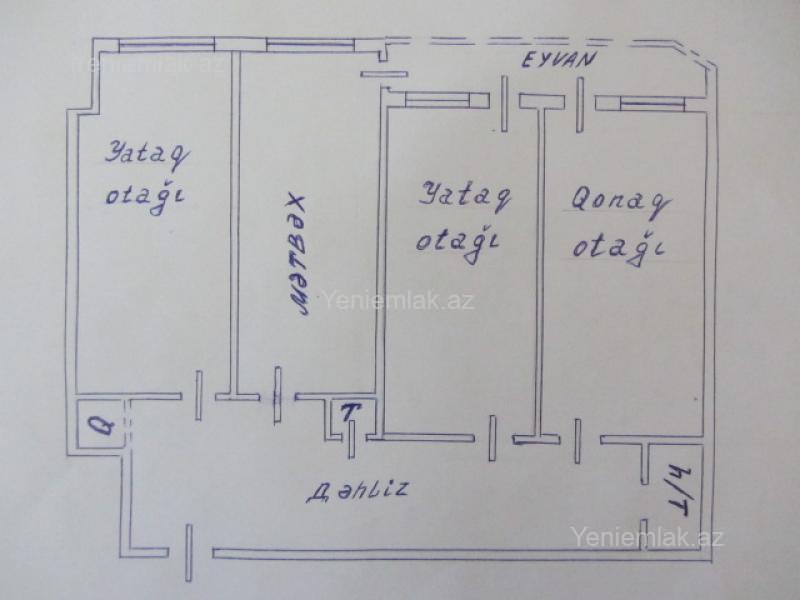 Yeniemlak.az
EYVAN
Yataq
otağı
Mətbəx
Yataq
otağı
Qonaq
otağı
Yeniemlak.az
Q
T
Дəhliz
T/Ч
Yeniemlak.az